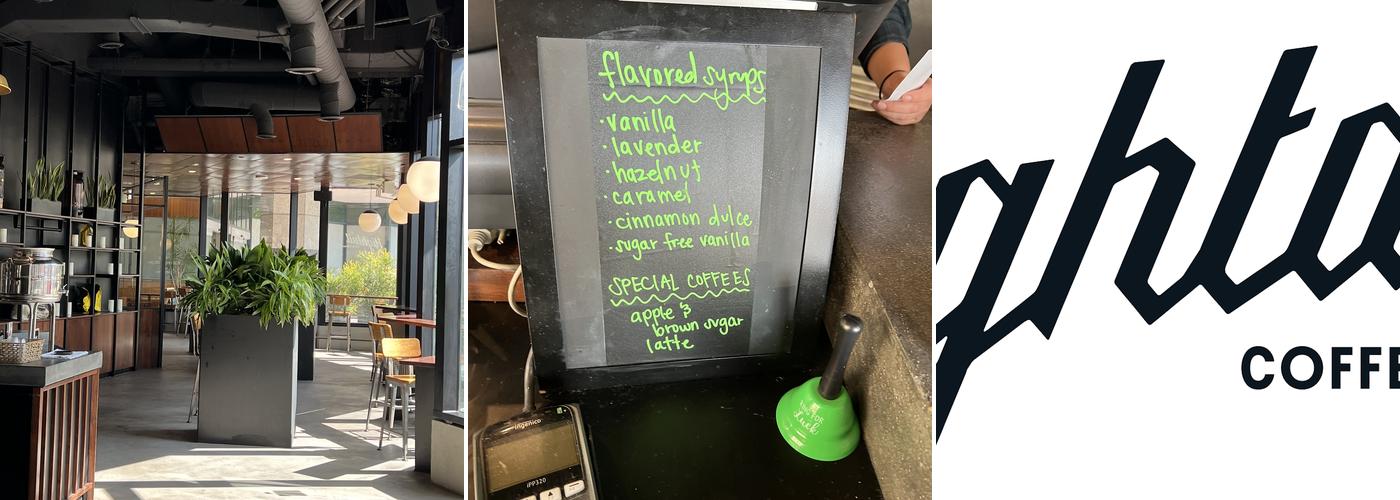 flavored syrups
· vanilla
· lavender
· hazelnut
· caramel
· cinnamon dulce
· sugar free vanilla
SPECIAL COFFEES
apple &
brown sugar
latte
RING FOR
Luck
ingenico
iPP320
ghta
COFFE